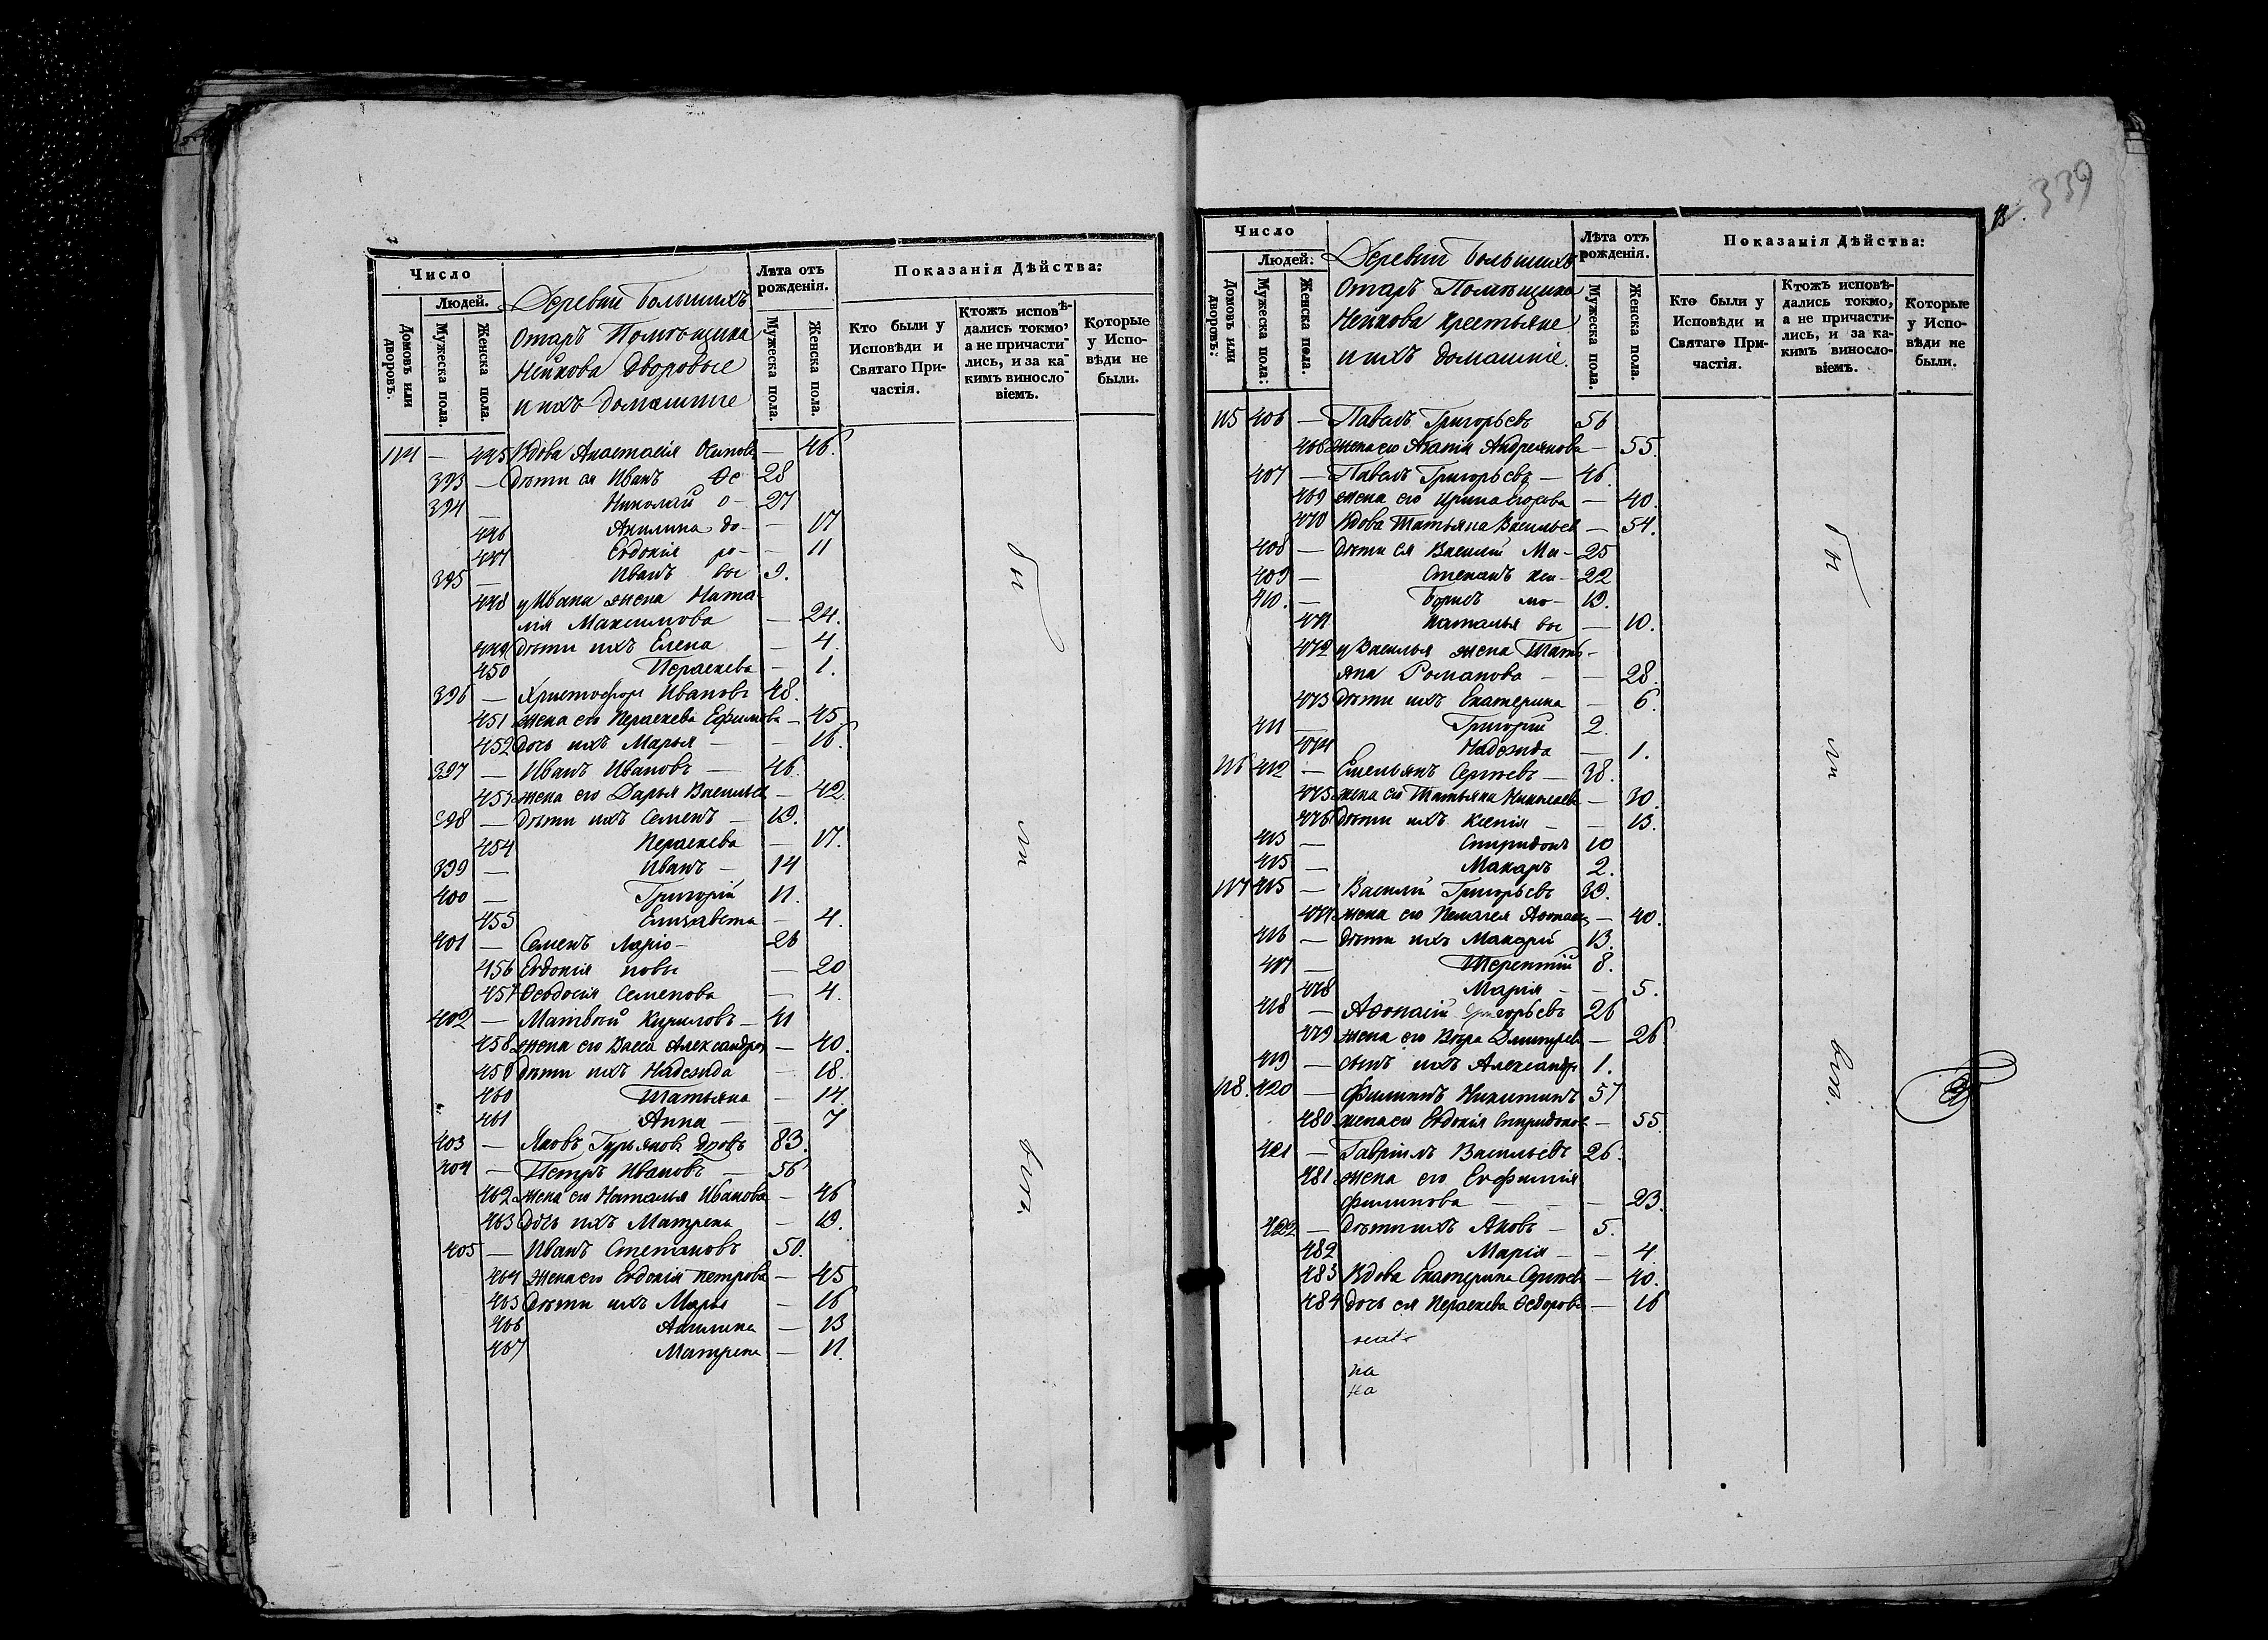 Число
Людей.
Домовъ или дворовъ.
Мужеска пола.
Женска пола.
Деревни Большихъ
Отаръ Помѣщика
Нейкова Дворовые
и ихъ домашніе
Лѣта отъ рожденія.
Мужеска пола.
Женска пола.
Показанія Дѣйства:
Кто были у Исповѣди и Святаго Причастія.
Ктожъ исповѣдались токмо, а не причастились, и за какимъ винословіемъ.
Которые у Исповѣди не были.
114 — 445 Вдова Анастасія Осипова — 46.
393 — Дѣти ея Иванъ Ѳе 28
394 — Николай о- 27
446 Акилина до- — 17
447 Евдокія ро- — 11
395 — Иванъ вы 9.
448 у Ивана жена Ната-
лія Максимова — 24.
449 дѣти ихъ Елена — 4.
450 Параскева — 1.
396 — Христофоръ Ивановъ 48.
451 жена его Параскева Ефимова — 45.
452 дочь ихъ Марья — — 16.
397 — Иванъ Ивановъ — 46.
453 жена его Дарья Васильев — 42.
398 — Дѣти ихъ Семенъ — 19.
454 Параскева — 17.
399 — Иванъ — 14
400 — Григорій 11.
455 Елизавета — 4.
401 — Семенъ Ларіо- 26
456 Евдокія новы — 20
457 Ѳеодосія Семенова — 4.
402 — Матвѣй Кириловъ — 41
458 жена его Васса Александров — 40.
459 дѣти ихъ Надежда — 18.
460 Татьяна — 14.
461 Анна — — 7
403 — Яковъ Гурьяновъ вдовъ 83.
404 — Петръ Ивановъ — 56
462 жена его Наталья Иванова — 46
463 Дочь ихъ Матрена — 19.
405 — Иванъ Степановъ 50.
464 Жена его Евдокія Петрова — 45
465 Дѣти ихъ Марья — 16
466 Акилина — 13
467 Матрена — 11.
бы
ли
вси.
339
Число
Людей:
Домовъ или дворовъ:
Мужеска пола:
Женска пола.
Деревни Большихъ
Отаръ Помѣщика
Нейкова крестьяне
и ихъ домашніе.
Лѣта отъ рожденія.
Мужеска пола.
Женска пола.
Показанія Дѣйства:
Кто были у Исповѣди и Святаго Причастія.
Ктожъ исповѣдались токмо, а не причастились, и за какимъ винословіемъ.
Которые у Исповѣди не были.
115 406 — Павелъ Григорьевъ 56
468 жена его Агапія Андреянова — 55.
407 — Павелъ Григорьевъ — 46.
469 жена его Ирина Егорова — 40.
470 Вдова Татьяна Васильев — 54.
408 — дѣти ея Василій Ма- 25
409 — Степанъ 22
410. — Борисъ мо- 19.
471 Наталья вы — 10.
472 у Василья жена Тать-
яна Романова — — 28.
473 дѣти ихъ Екатерина — 6.
411 — Григорій 2.
474 Надежда — 1.
116 412 — Емельянъ Сергѣевъ — 38.
475 жена его Татьяна Николаева — 30.
476 дѣти ихъ Ксенія — — 13.
413 — Спиридонъ 10
415 — Макаръ 2.
117 415 — Василій Григорьевъ 39.
477 жена его Пелагея Аѳонас — 40.
416 — дѣти ихъ Макарій 13.
417 — Терентій 8.
478 Марія — — 5.
418 — Аѳонасій Григорьевъ 26
479 жена его Вѣра Дмитріев — 26
419 — сынъ ихъ Александр 1.
118. 420 — Филипъ Никитинъ 57
480 жена его Евдокія Спиридонов — 55.
421 — Гавріилъ Васильевъ 26.
481 жена его Евфимія
Филипова — — 23.
422 — Дѣти ихъ Яковъ — 5.
482 Марія — — 4
483 Вдова Екатерина Сергѣев — 40.
484 дочь ея Параскева Ѳедорова — 16
на
на
бы
ли
вси.